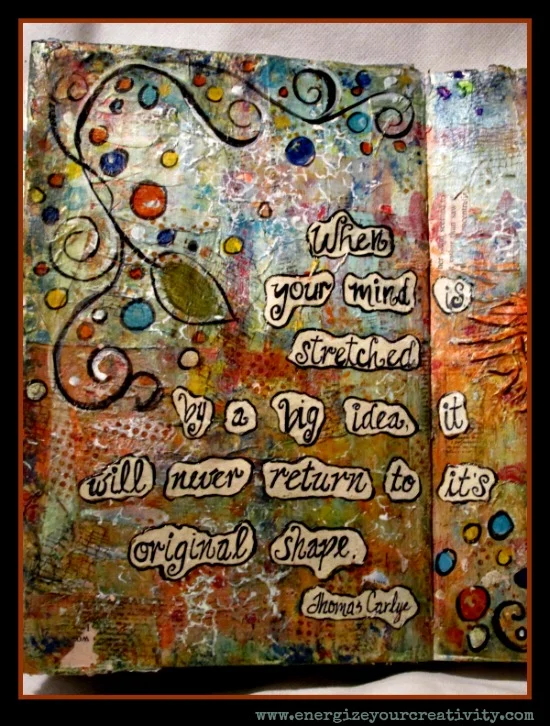 When
your mind is
stretched
by a big idea, it
will never return to it's
original shape.
Thomas Carlye
www.energizeyourcreativity.com